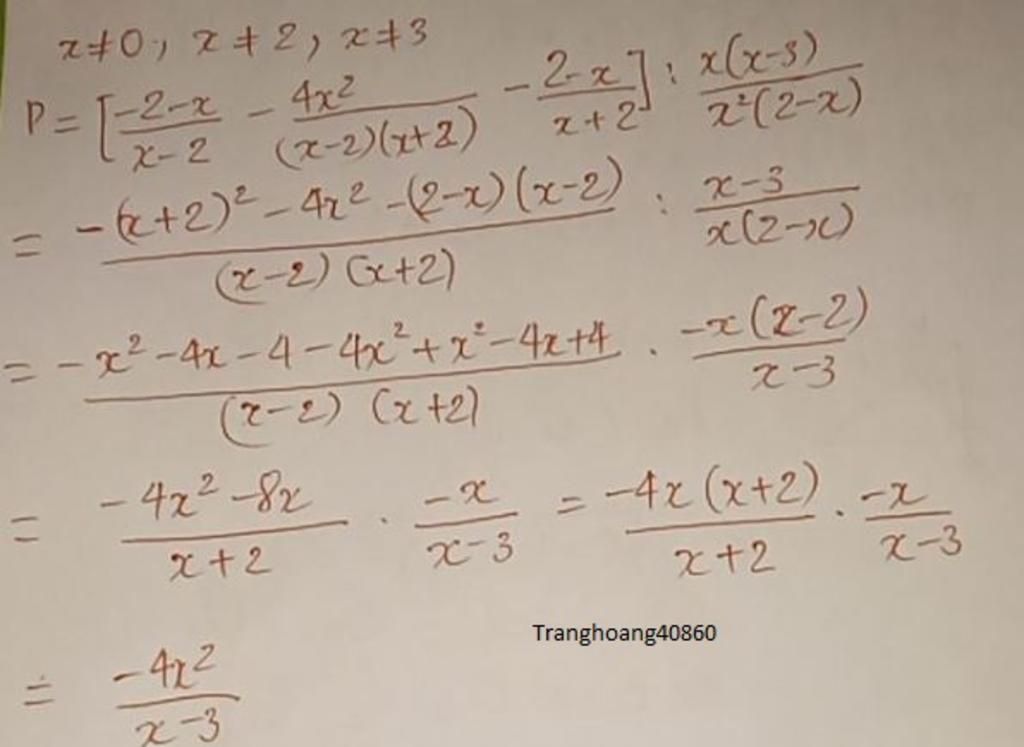 x≠0, x≠2, x≠3
P = [(-2-x)/(x-2) - 4x²/((x-2)(x+2)) - (2-x)/(x+2)] : x(x-3)/(x²(2-x))
= (-(x+2)² - 4x² - (2-x)(x-2))/((x-2)(x+2)) : (x-3)/(x(2-x))
= (-x² - 4x - 4 - 4x² + x² - 4x + 4)/((x-2)(x+2)) . (-x(x-2))/(x-3)
= (-4x² - 8x)/(x+2) . (-x)/(x-3) = (-4x(x+2))/(x+2) . (-x)/(x-3)
Tranghoang40860
= (-4x²)/(x-3)